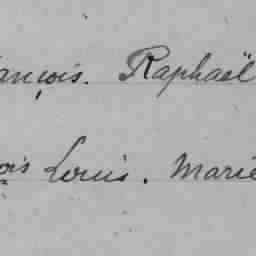 ançois. Raphaël
ois Louis. Marie